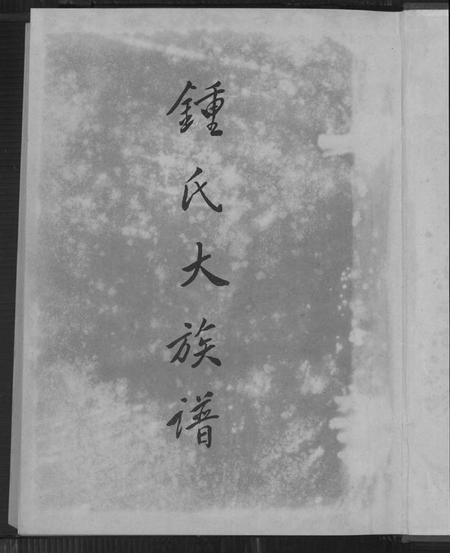 鍾氏大族谱